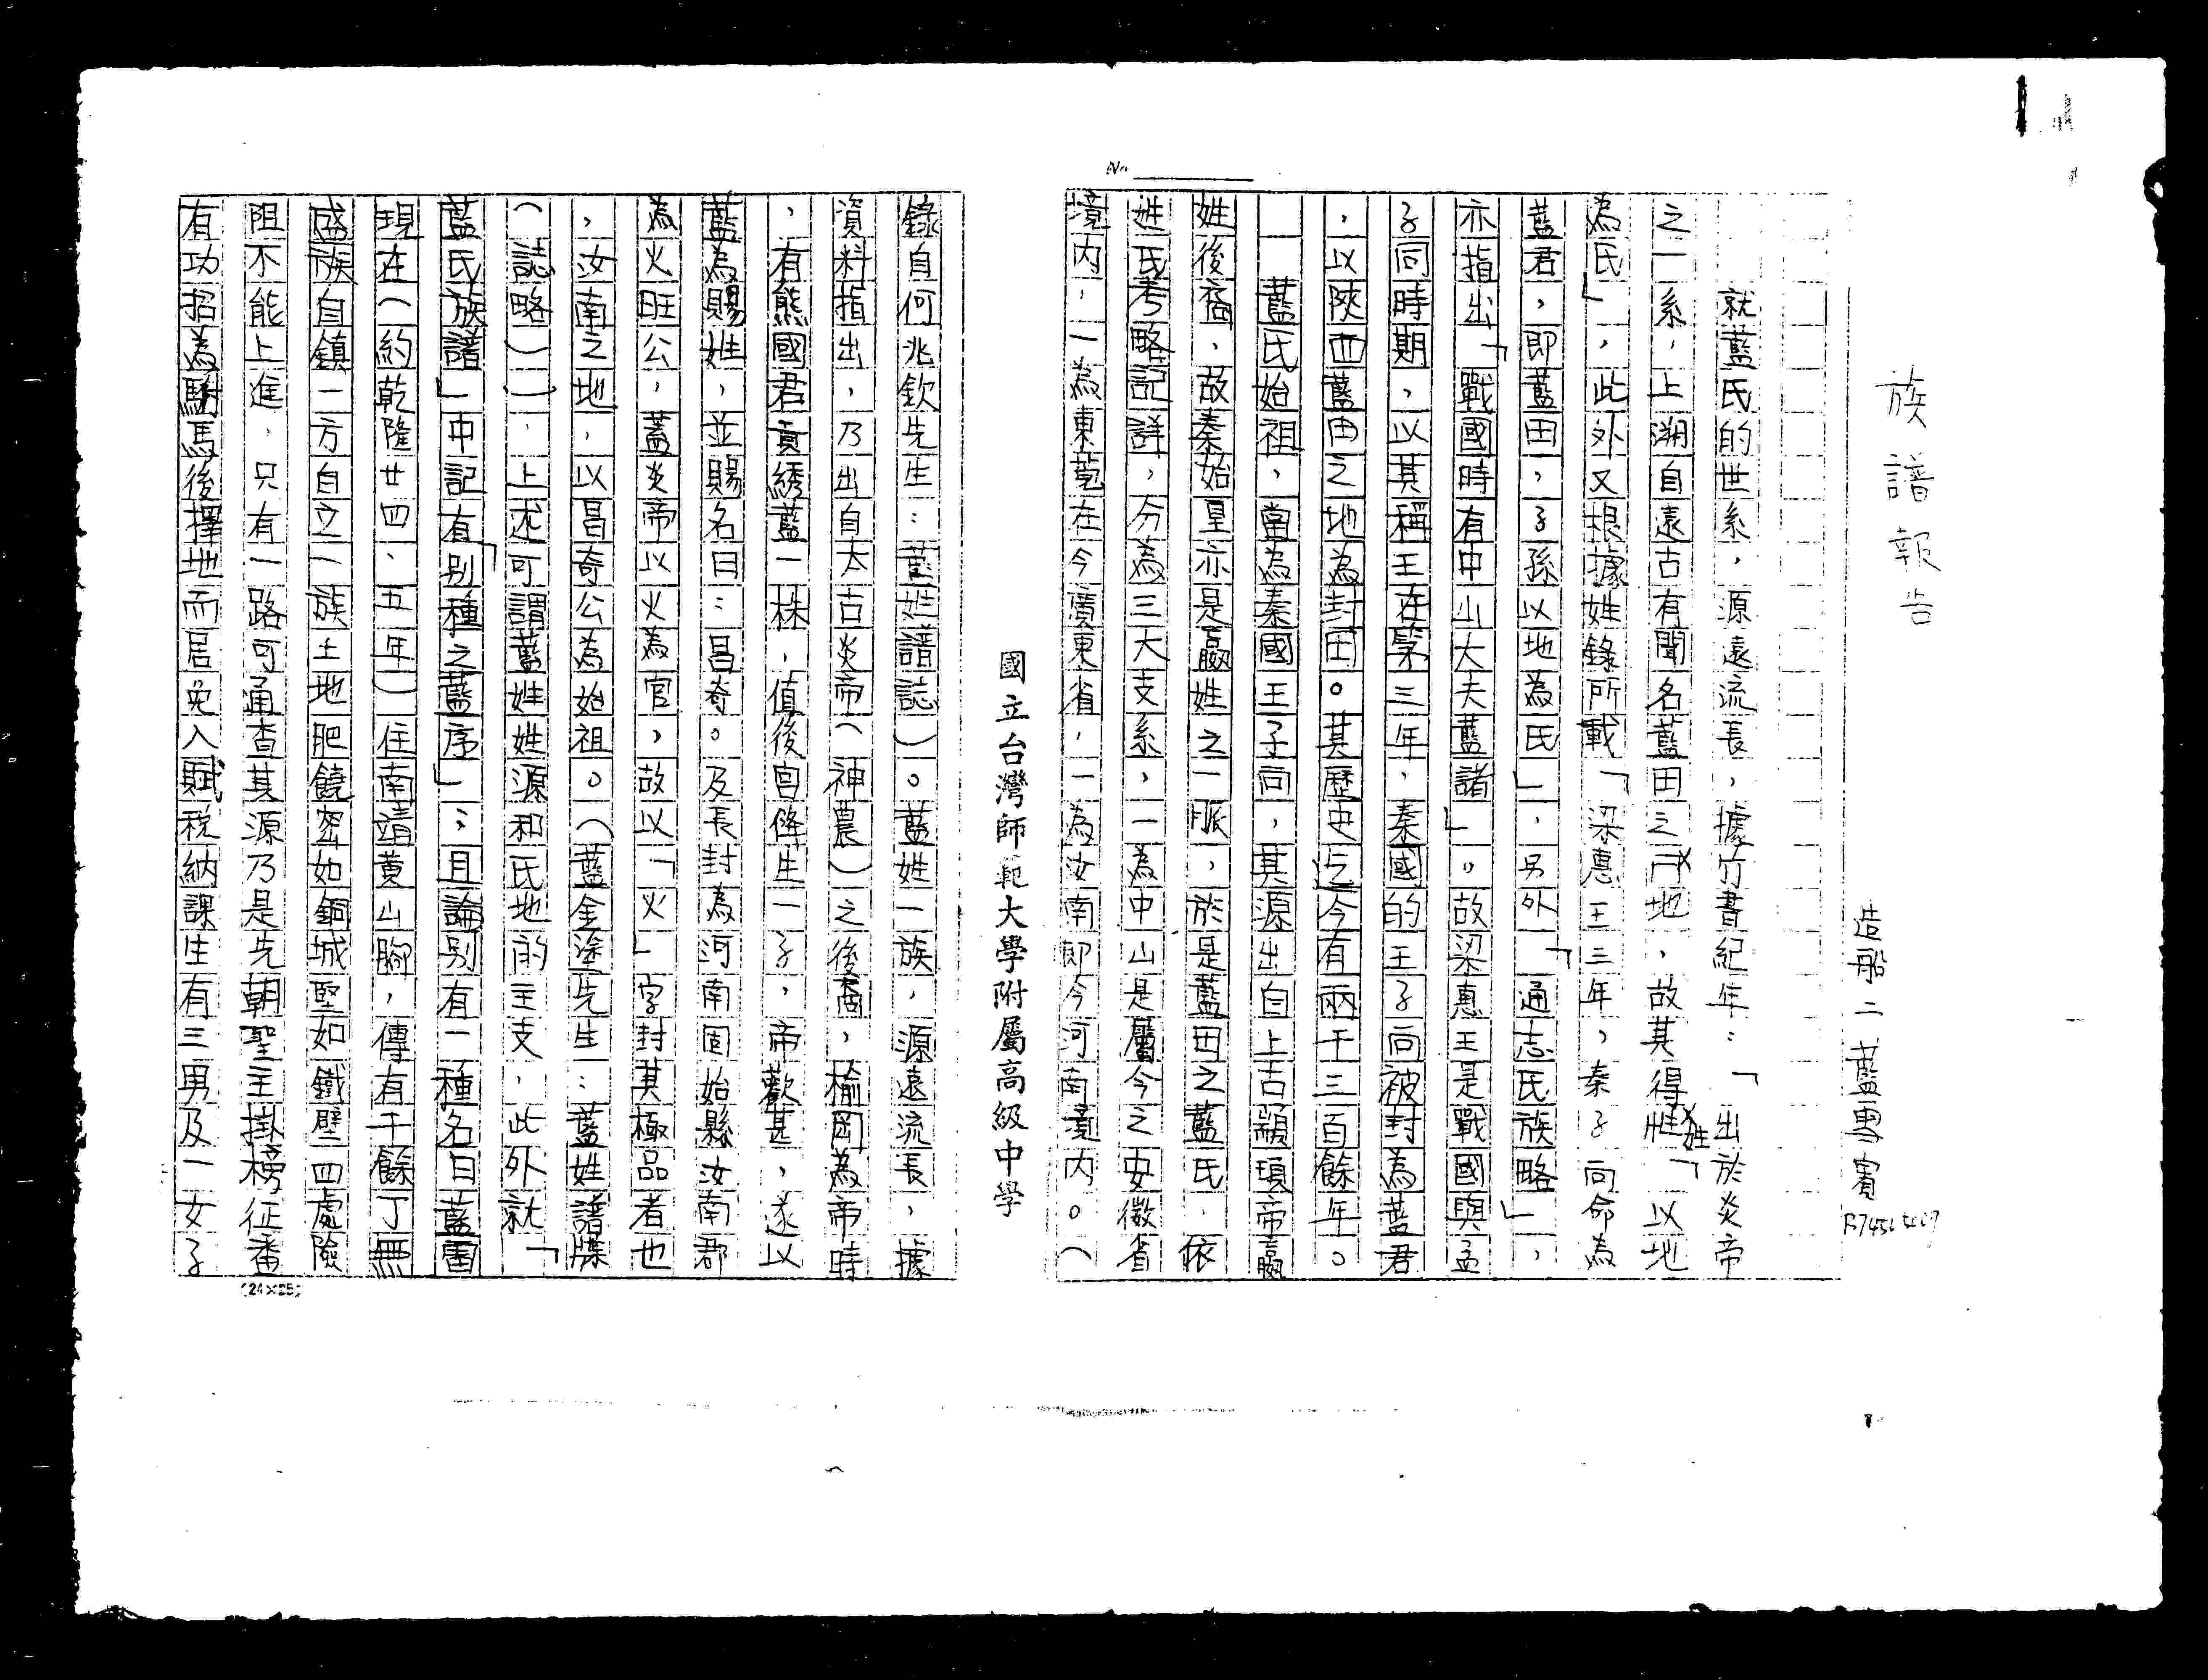 族譜報告
造船二 藍男賓
就藍氏的世系，源遠流長，據竹書紀年：「出於炎帝
之一系，上溯自遠古有聞名藍田之地，故其得姓「以地
為氏」，此外又根據姓錄所載「梁惠王三年，秦子向命為
藍君，即藍田，子孫以地為氏」，另外「通志氏族略」，
亦指出「戰國時有中山大夫藍諸」。故梁惠王是戰國與孟
子同時期，以其稱王在第三年，秦國的王子向被封為藍君
，以陝西藍田之地為封田。其歷史迄今有兩千三百餘年。
藍氏始祖，當為秦國王子向，其源出自上古顓頊帝嬴
姓後裔，故秦始皇亦是嬴姓之一脈，於是藍田之藍氏，依
姓氏考略記詳，分為三大支系，一為中山是屬今之安徽省
境內，一為東莞在今廣東省，一為汝南即今河南境內。（
國立台灣師範大學附屬高級中學
錄自何兆欽先生：藍姓譜誌）。藍姓一族，源遠流長，據
資料指出，乃出自太古炎帝（神農）之後裔，榆岡為帝時
，有熊國君貢綉藍一株，值後宮降生一子，帝歡甚，遂以
藍為賜姓，並賜名曰：昌奇。及長封為河南固始縣汝南郡
為火旺公，蓋炎帝以火為官，故以「火」字封其極品者也
，汝南之地，以昌奇公為始祖。（藍金塗先生：藍姓譜牒
（誌略）），上述可謂藍姓姓源和氏地的主支，此外就「
藍氏族譜」中記有「別種之藍序」：且論別有一種名曰藍雷
現在（約乾隆廿四、五年）住南靖黃山腳，傳有千餘丁無
盛族自鎮一方自立一族土地肥饒密如銅城堅如鐵壁四處險
阻不能上進，只有一路可通查其源乃是先朝聖主掛榜征番
有功招為駙馬後擇地而居免入賦稅納課生有三男及一女子
(24×25)